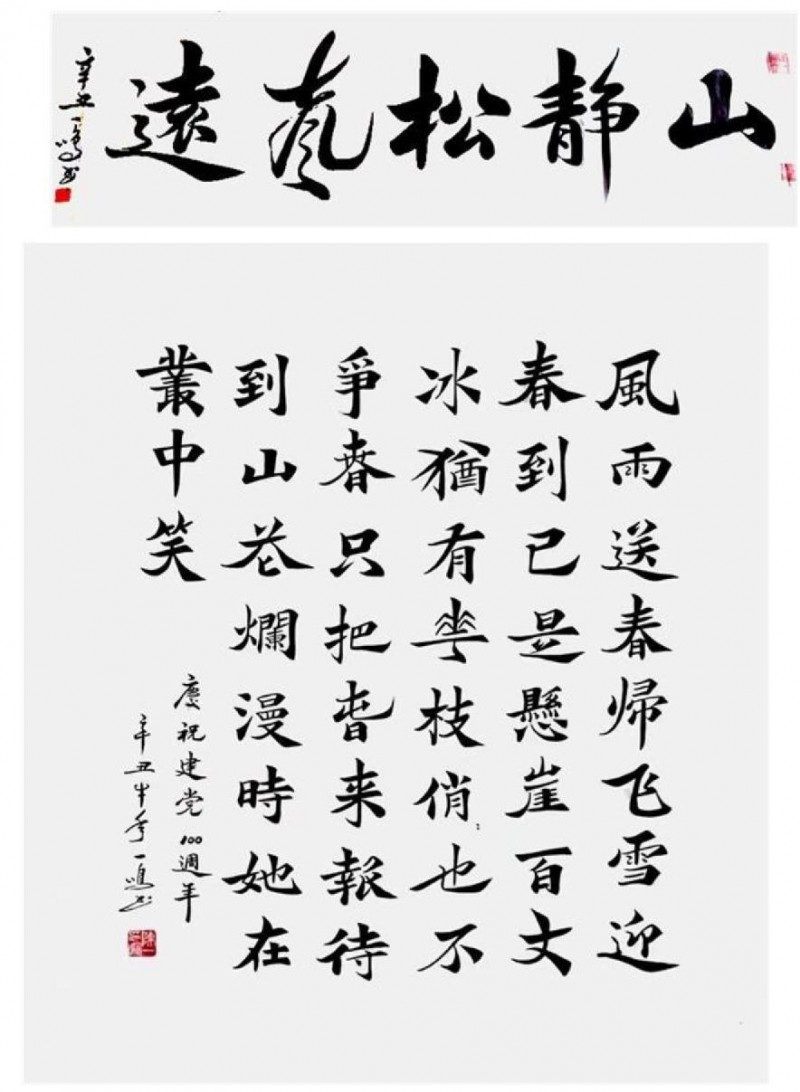 山静松声遠
辛丑一鸣书
風雨送春帰飞雪迎
春到已是懸崖百丈
冰猶有華枝俏也不
爭春只把春来報待
到山花爛漫時她在
叢中笑
慶祝建党100週年
辛丑牛年一鸣书